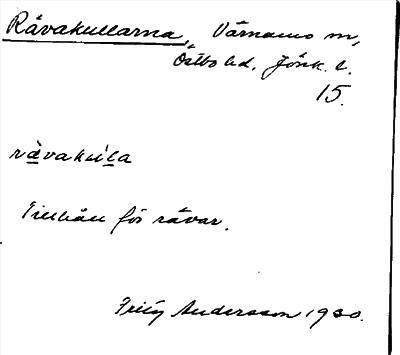 Råvakullarna, Värnamo m,
Östbo hd. Jönk. l.
15.
råvakula
Tillhåll för rävar.
Fritz Andersson 1930.